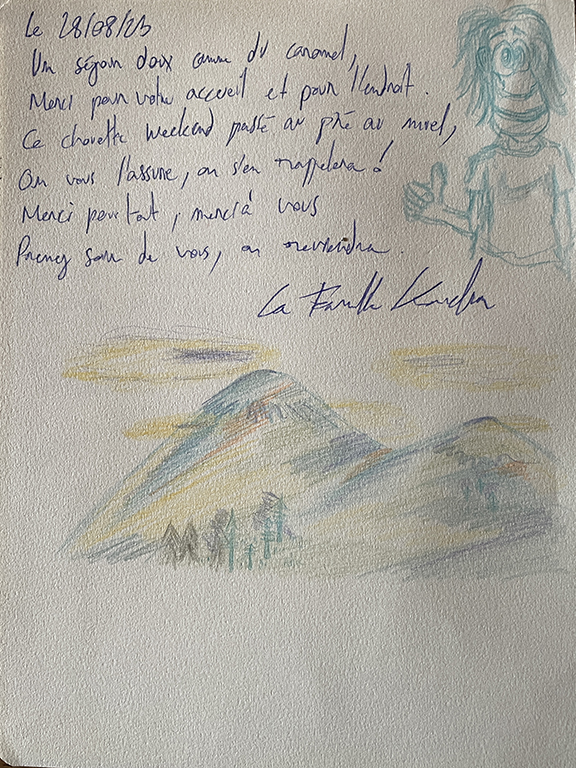 Le 28/08/23
Un séjour doux comme du caramel,
Merci pour votre accueil et pour l'endroit.
Ce chouette weekend passé au pré au miel,
On vous l'assure, on s'en rappelera !
Merci pour tout, merci à vous
Prenez soin de vous, on reviendra.
La Famille